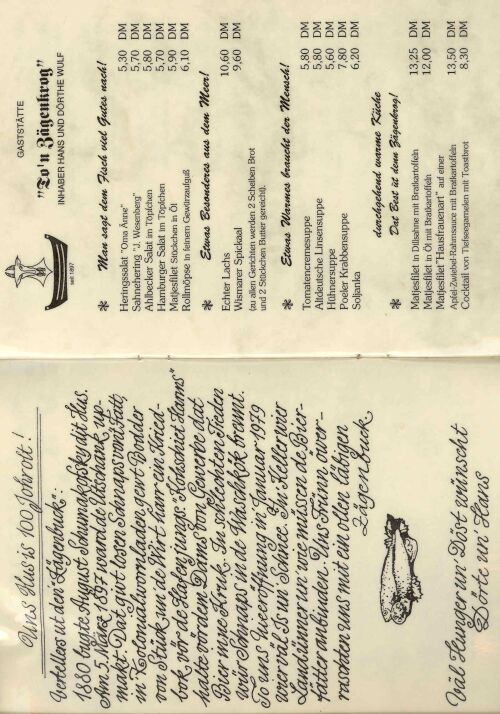 Uns Hus is 100 Johr olt!
Vertellers ut den "Zägenbuk":
1880 bugte August Schumakofsky dit Hus.
Am 5. März 1897 ward de Utschank up-
makt. Dat givt losen Schnaps vom Fatt,
in Kolonialworenladen gewt Bodder
von Stück un de Wirt harr ein Kried-
bok vör de Hafenjungs. "Kohschiet Hanns"
halte vör dem Damsbom Gewerbe dat
Bier inne Kruk. In schlechten Tieden
wür Schnaps in de Waschkök brennt.
To uns Niceröffnung in Januar 1979
wier väl Is un' Schnee. In Keller wier
Landünner un' wie müssen de Bier-
fätter anbinden. Uns Frünn över-
raschten uns mit ein ollen läbigen
Zägenbuck.
Väl Hunger un' Döst wünscht
Dörte un' Hans
seit 1897
GASTSTÄTTE
"To'n Zägenkrog"
INHABER HANS UND DÖRTHE WULF
* Man sagt dem Fisch viel Gutes nach!
Heringssalat "Oma Änne" 5,30 DM
Sahnehering "J. Wesenberg" 5,70 DM
Ahlbecker Salat im Töpfchen 5,80 DM
Hamburger Salat im Töpfchen 5,70 DM
Matjesfilet Stückchen in Öl 5,90 DM
Rollmöpse in feinem Gewürzaufguß 6,10 DM
* Etwas Besonderes aus dem Meer!
Echter Lachs 10,60 DM
Wismarer Spickaal 9,60 DM
(zu allen Gerichten werden 2 Scheiben Brot
und 2 Stückchen Butter gereicht).
* Etwas Warmes braucht der Mensch!
Tomatencremesuppe 5,80 DM
Altdeutsche Linsensuppe 5,80 DM
Hühnersuppe 5,60 DM
Poeler Krabbensuppe 7,80 DM
Soljanka 6,20 DM
durchgehend warme Küche
* Dat Best ist dem Zägenkrog!
Matjesfilet in Dillsahne mit Bratkartoffeln 13,25 DM
Matjesfilet in Öl mit Bratkartoffeln 12,00 DM
Matjesfilet "Hausfrauenart" auf einer
Apfel-Zwiebel-Rahmsauce mit Bratkartoffeln 13,50 DM
Cocktail von Tiefseegarnelen mit Toastbrot 8,30 DM